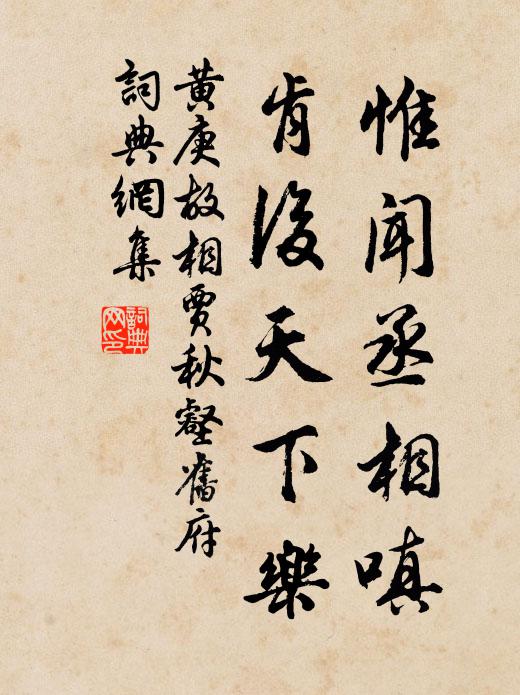 惟聞丞相嗔
肯後天下樂
黄庚故相賈秋壑舊府
詞典網集
詞典網印